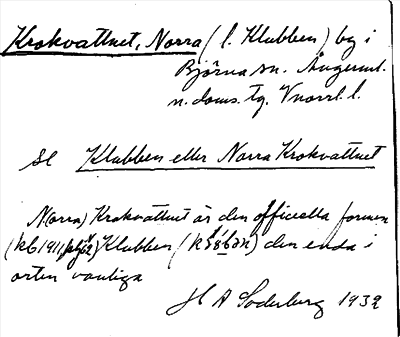 Krokvattnet, Norra (l. Klubben) by i
Björna sn. Ångerml.
n. doms. tg. Vnorrl. l.
se Klubben eller Norra Krokvattnet
N(orra) Krokvattnet är den officiella formen
(kb 1911, ) Klubben ( ) den enda i
orten vanliga
H A Söderberg 1932